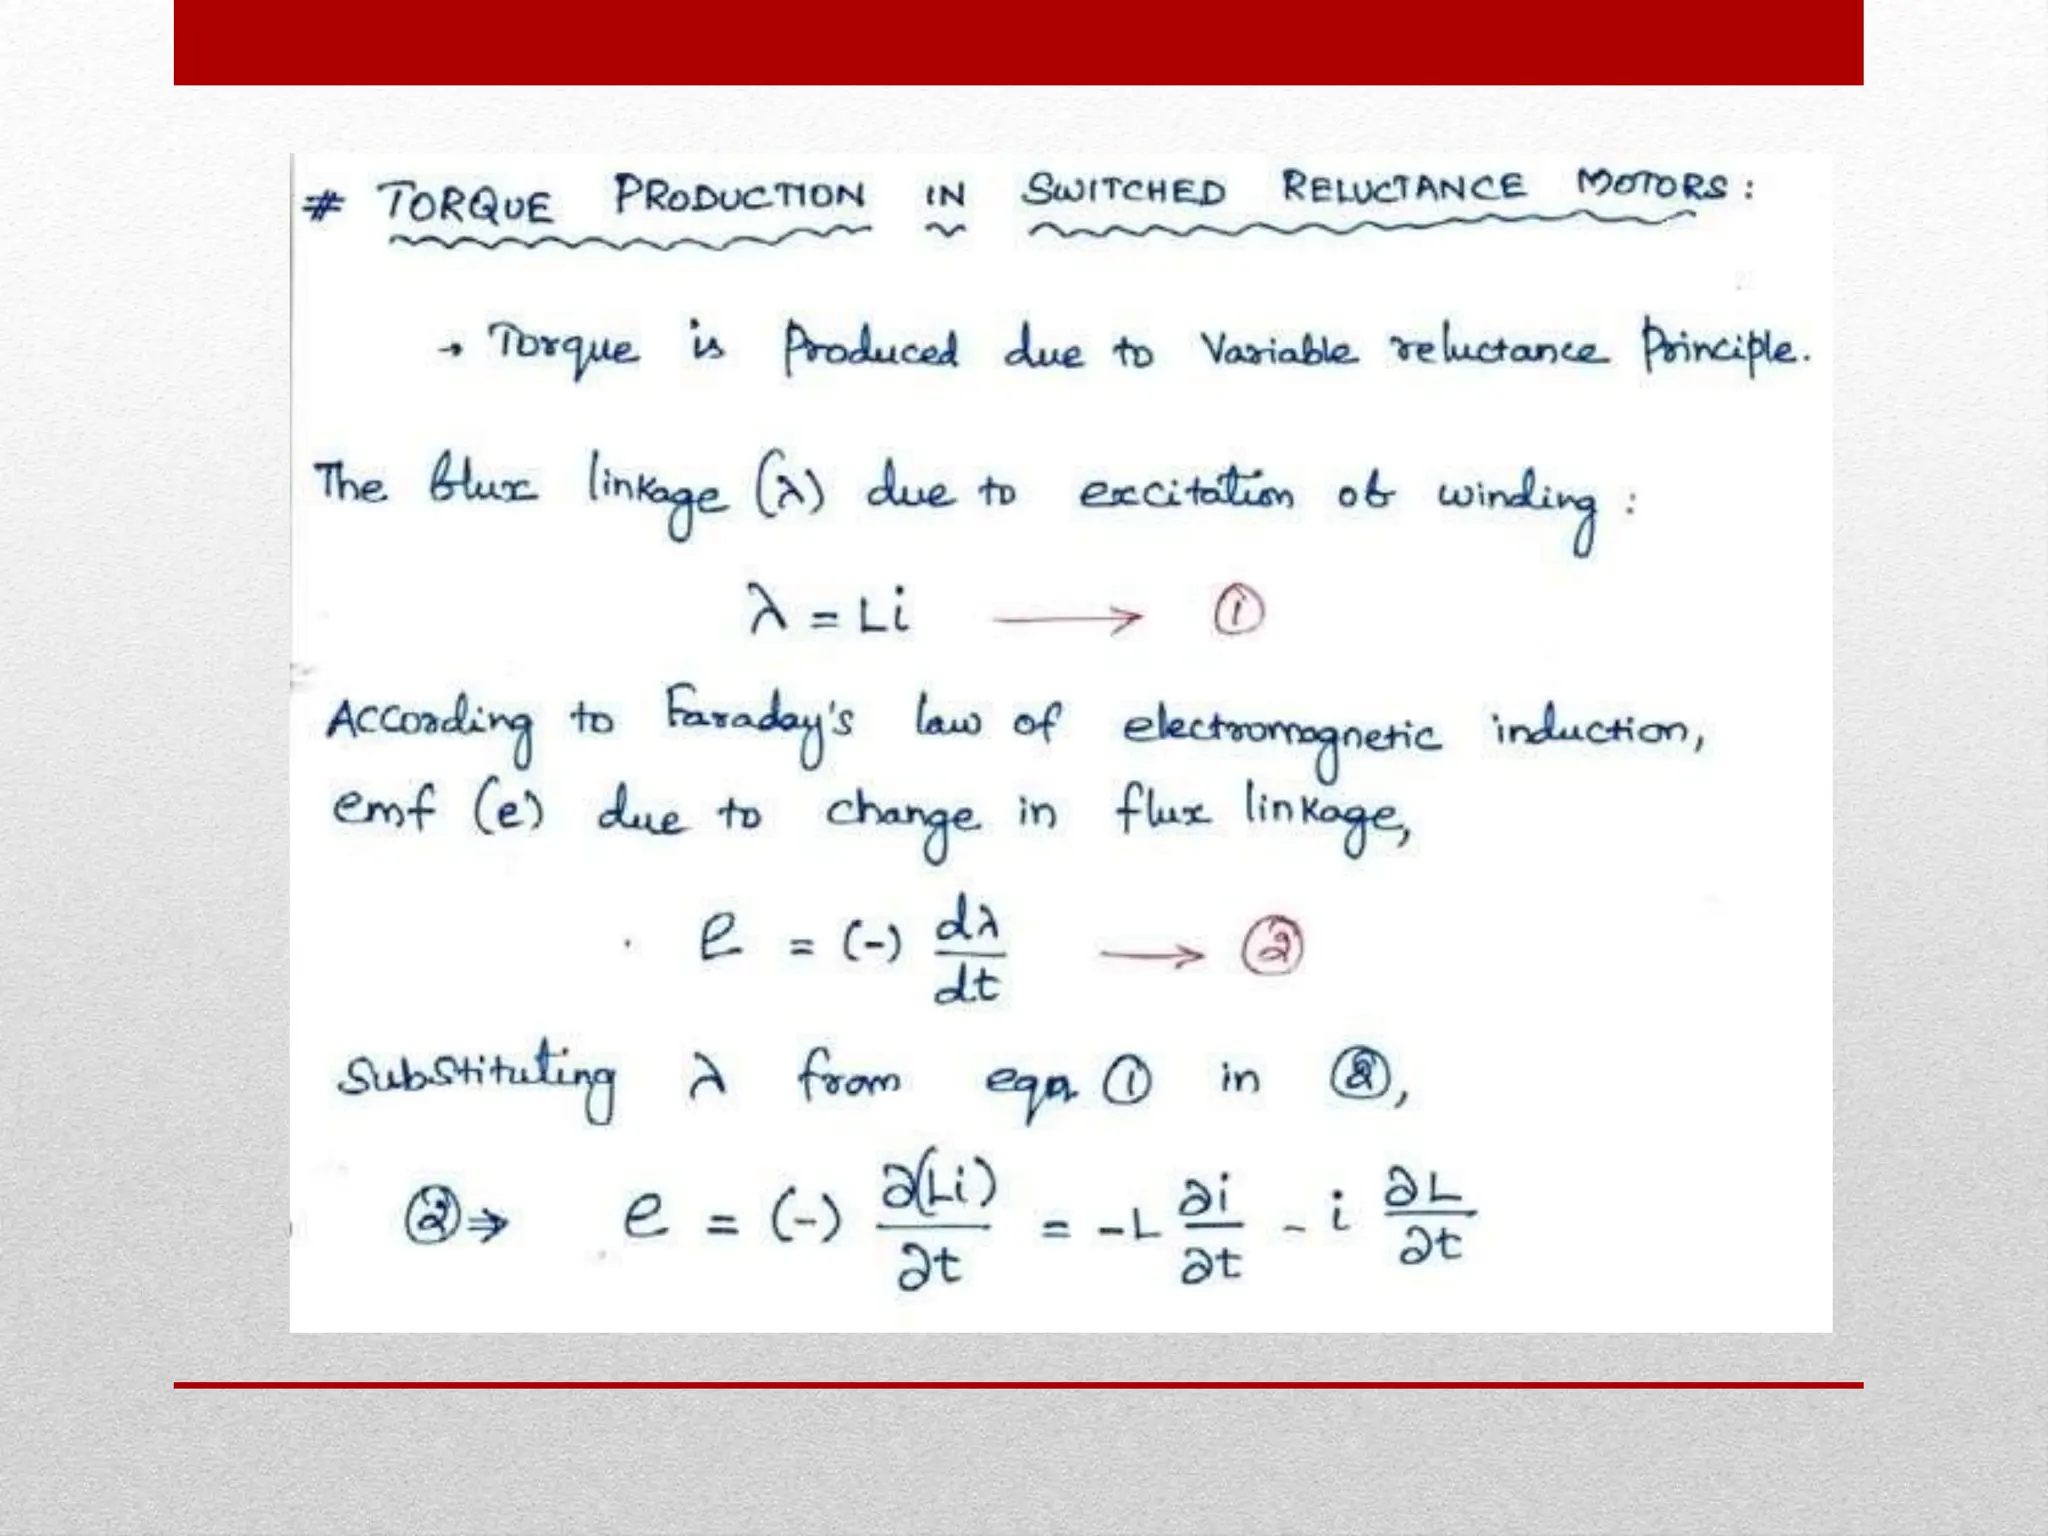 # TORQUE PRODUCTION IN SWITCHED RELUCTANCE MOTORS :
→ Torque is Produced due to Variable reluctance Principle.
The flux linkage (λ) due to excitation of winding :
λ = Li → ①
According to Faraday's law of electromagnetic induction,
emf (e) due to change in flux linkage,
e = (-) dλ/dt → ②
Substituting λ from eqn. ① in ②,
② ⇒ e = (-) ∂(Li)/∂t = -L ∂i/∂t - i ∂L/∂t